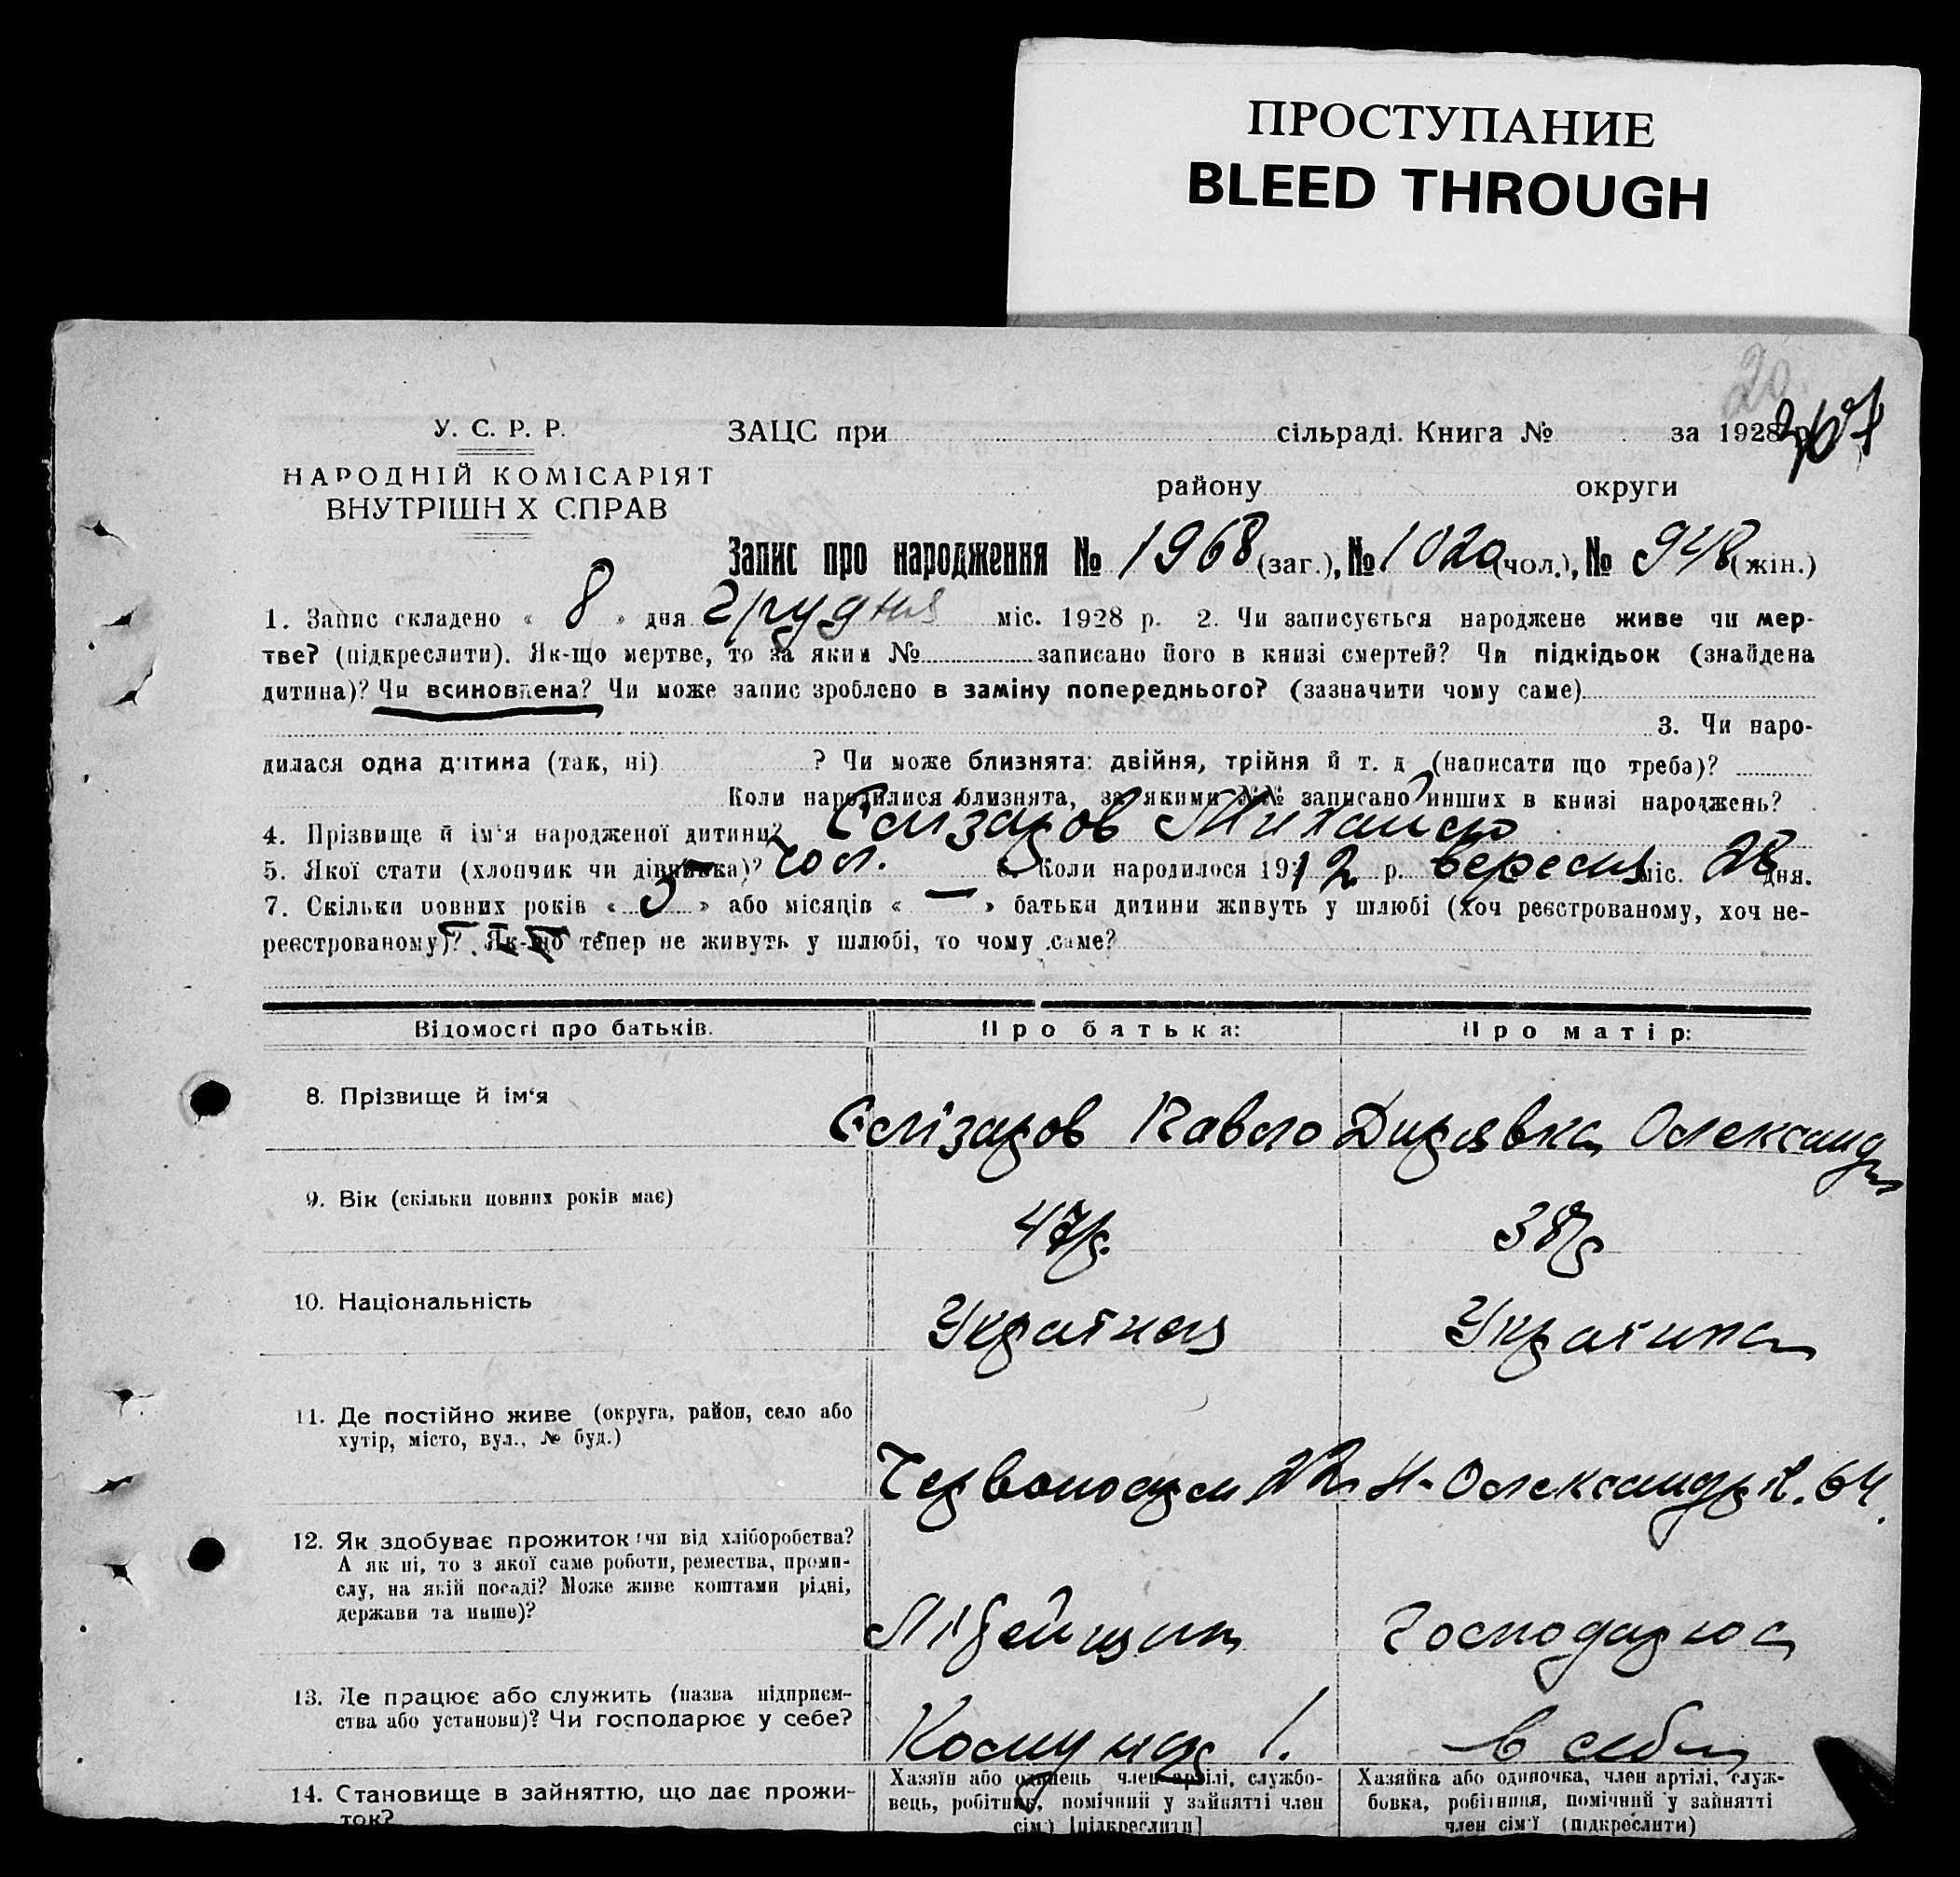 ПРОСТУПАНИЕ
BLEED THROUGH
20
У. С. Р. Р.
ЗАЦС при сільраді. Книга № за 1928 р.
НАРОДНІЙ КОМІСАРІЯТ
ВНУТРІШН Х СПРАВ
району округи
Запис про народження № 1968 (заг.), № 1020 (чол.), № 948 (жін.)
1. Запис складено « 8 » дня грудня міс. 1928 р. 2. Чи записується народжене живе чи мер-
тве? (підкреслити). Як-що мертве, то за яким № записано його в книзі смертей? Чи підкідьок (знайдена
дитина)? Чи всиновлена? Чи може запис зроблено в заміну попереднього? (зазначити чому саме)
3. Чи наро-
дилася одна дитина (так, ні) ? Чи може близнята: двійня, трійня й т. д (написати що треба)?
Коли народилися близнята, за якими №№ записано инших в книзі народжень?
4. Прізвище й ім'я народженої дитини? Єлізаров Михайло
5. Якої стати (хлопчик чи дівчинка)? чол. 6. Коли народилося 1912 р. вересня міс. 28 дня.
7. Скільки повних років « » або місяців « — » батьки дитини живуть у шлюбі (хоч реєстрованому, хоч не-
реєстрованому)? Як-що тепер не живуть у шлюбі, то чому саме?
Відомості про батьків.
Про батька:
Про матір:
8. Прізвище й ім'я
Єлізаров Павло
Дирявка Олександра
9. Вік (скільки повних років має)
47 р.
38 р
10. Національність
Українец
Українка
11. Де постійно живе (округа, район, село або
хутір, місто, вул., № буд.)
Н-Олександр 64.
12. Як здобуває прожиток чи від хліборобства?
А як ні, то з якої саме роботи, ремества, проми-
слу, на якій посаді? Може живе коштами рідні,
держави та инше)?
13. Де працює або служить (назва підприєм-
ства або установи)? Чи господарює у себе?
в себе
14. Становище в зайняттю, що дає прожи-
ток?
Хазяїн або одинець член артілі, службо-
вець, робітник, помічний у зайнятті член
сім'ї [підкреслити]
Хазяйка або одиночка, член артілі, служ-
бовка, робітниця, помічний у зайнятті
член сім'ї (підкреслити)